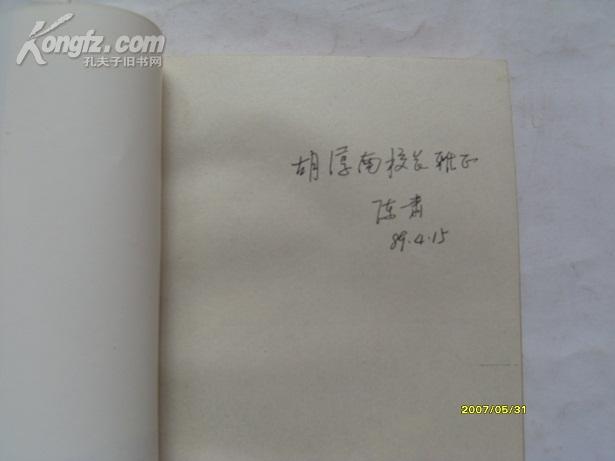 Kongfz.com
孔夫子旧书网
胡淳南校长雅正
陈肃
89.4.15
2007/05/31